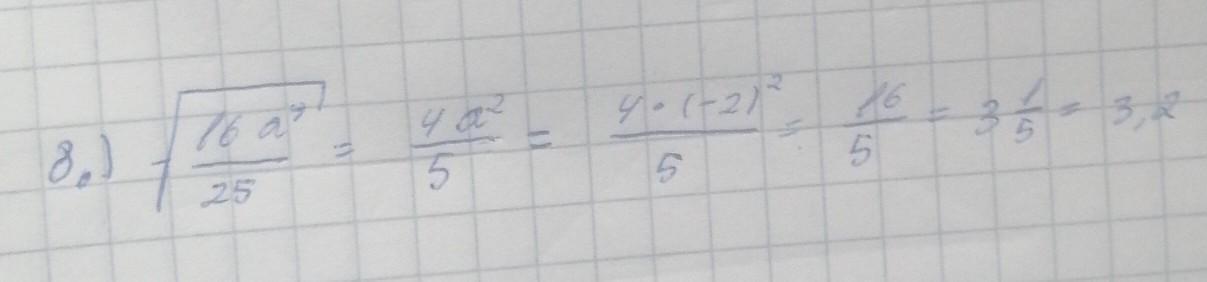 8.) √(16a⁴/25) = 4a²/5 = 4·(-2)²/5 = 16/5 = 3 1/5 = 3,2